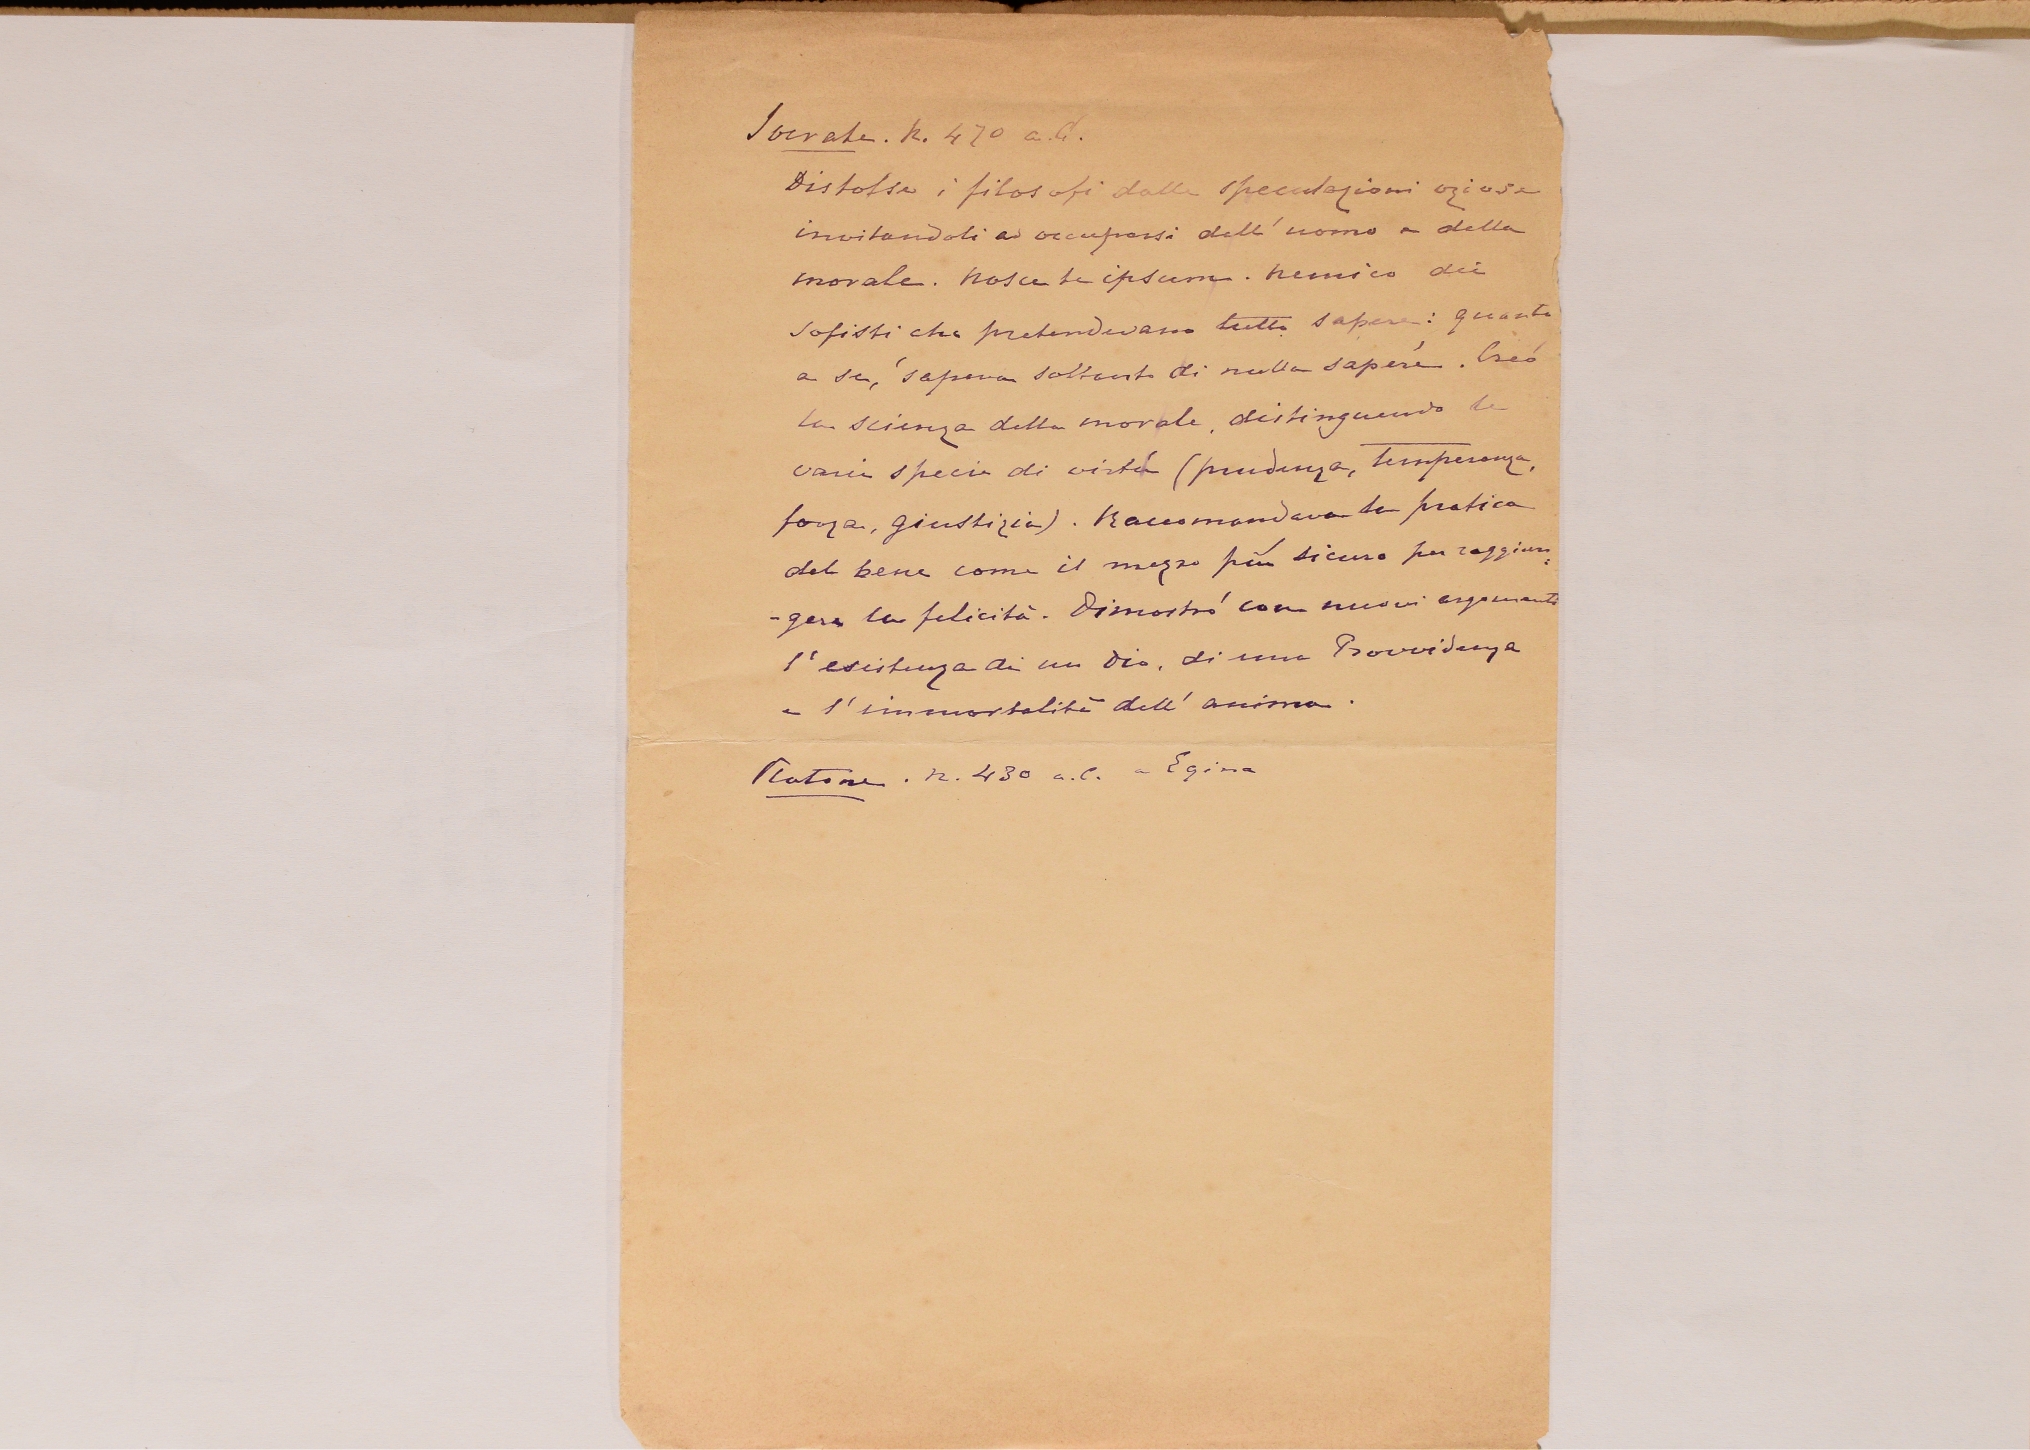 Socrate. N. 470 a.C.
Distolse i filosofi dalle speculazioni oziose
invitandoli ad occuparsi dell'uomo e della
morale. Nosce te ipsum. Nemico dei
sofisti che pretendevano tutto sapere: quanto
a se, sapeva soltanto di nulla sapere. Creò
la scienza della morale, distinguendo le
varie specie di virtù (prudenza, temperanza,
forza, giustizia). Raccomandava la pratica
del bene come il mezzo più sicuro per raggiun=
-gere la felicità. Dimostró con nuovi argomenti
l'esistenza di un Dio, di una Provvidenza
e l'immortalità dell'anima.
Platone. N. 430 a.C. a Egina